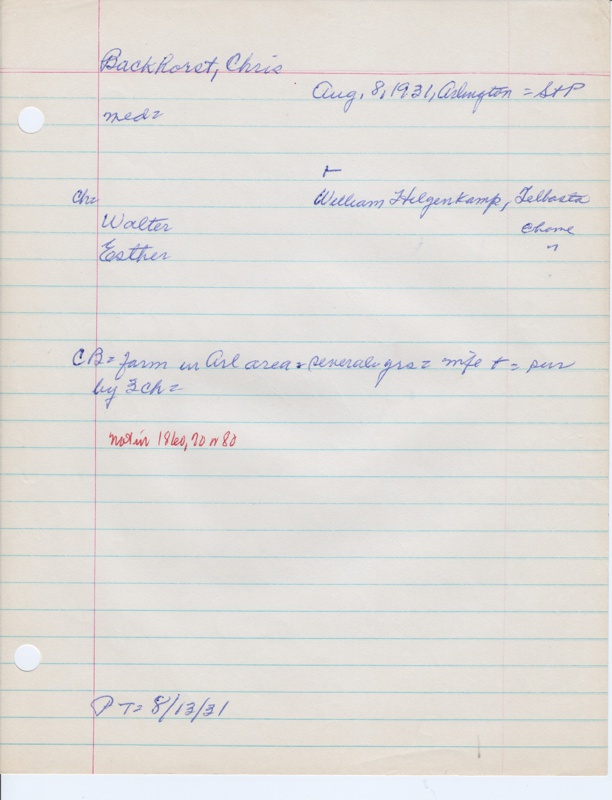 Backhorst, Chris
Aug, 8, 1931, Arlington = S+P
med=
+
ch= William Hilgenkamp, Telbasta
Walter @home
Esther "
CB= farm in Arl area = several yrs = wife + = sur
by 3 ch =
not in 1860, 70 or 80
PT= 8/13/31